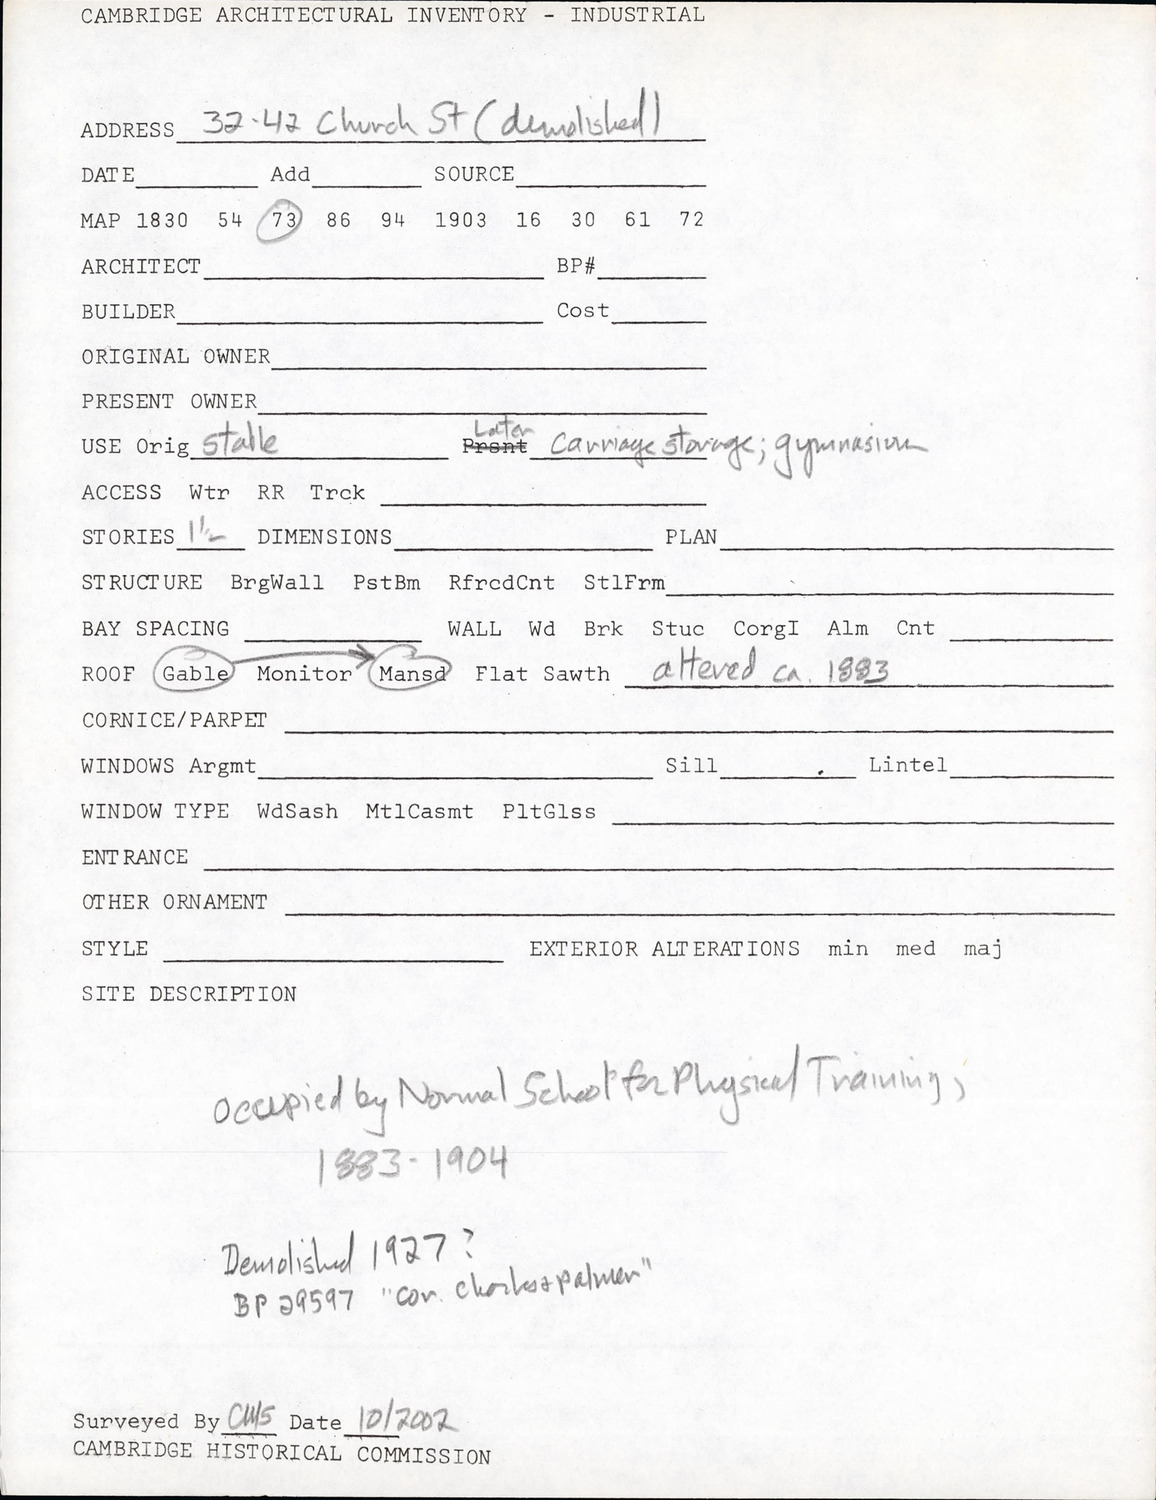 CAMBRIDGE ARCHITECTURAL INVENTORY - INDUSTRIAL
ADDRESS 32-42 Church St (demolished)
DATE Add SOURCE
MAP 1830 54 73 86 94 1903 16 30 61 72
ARCHITECT BP#
BUILDER Cost
ORIGINAL OWNER
PRESENT OWNER
USE Orig stable Prsnt Later Carriage storage; gymnasium
ACCESS Wtr RR Trck
STORIES 1½ DIMENSIONS PLAN
STRUCTURE BrgWall PstBm RfrcdCnt StlFrm
BAY SPACING WALL Wd Brk Stuc CorgI Alm Cnt
ROOF Gable Monitor Mansd Flat Sawth altered ca. 1883
CORNICE/PARPET
WINDOWS Argmt Sill Lintel
WINDOW TYPE WdSash MtlCasmt PltGlss
ENTRANCE
OTHER ORNAMENT
STYLE EXTERIOR ALTERATIONS min med maj
SITE DESCRIPTION
Occupied by Normal School for Physical Training,
1883-1904
Demolished 1927?
BP 29597 "cor. Charles & Palmer"
Surveyed By CMS Date 10/2002
CAMBRIDGE HISTORICAL COMMISSION